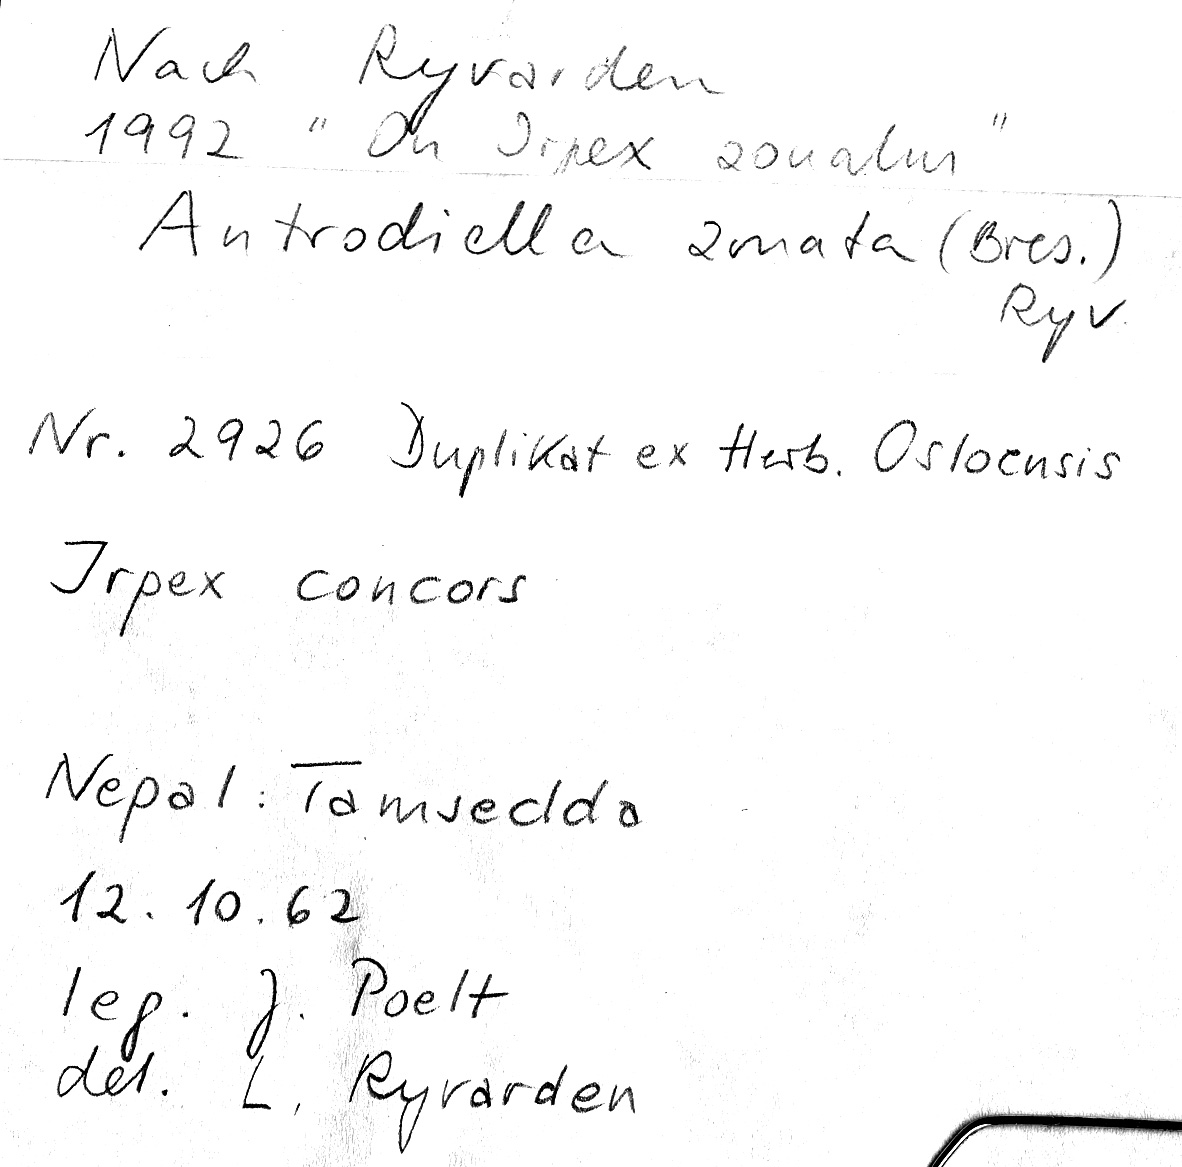 Nach Ryvarden
1992 "On Irpex zonatus"
Antrodiella zonata (Bres.)
Ryv.
Nr. 2926 Duplikat ex Herb. Osloensis
Irpex concors
Nepal: Tamsedda
12.10.62
leg. J. Poelt
det. L. Ryvarden